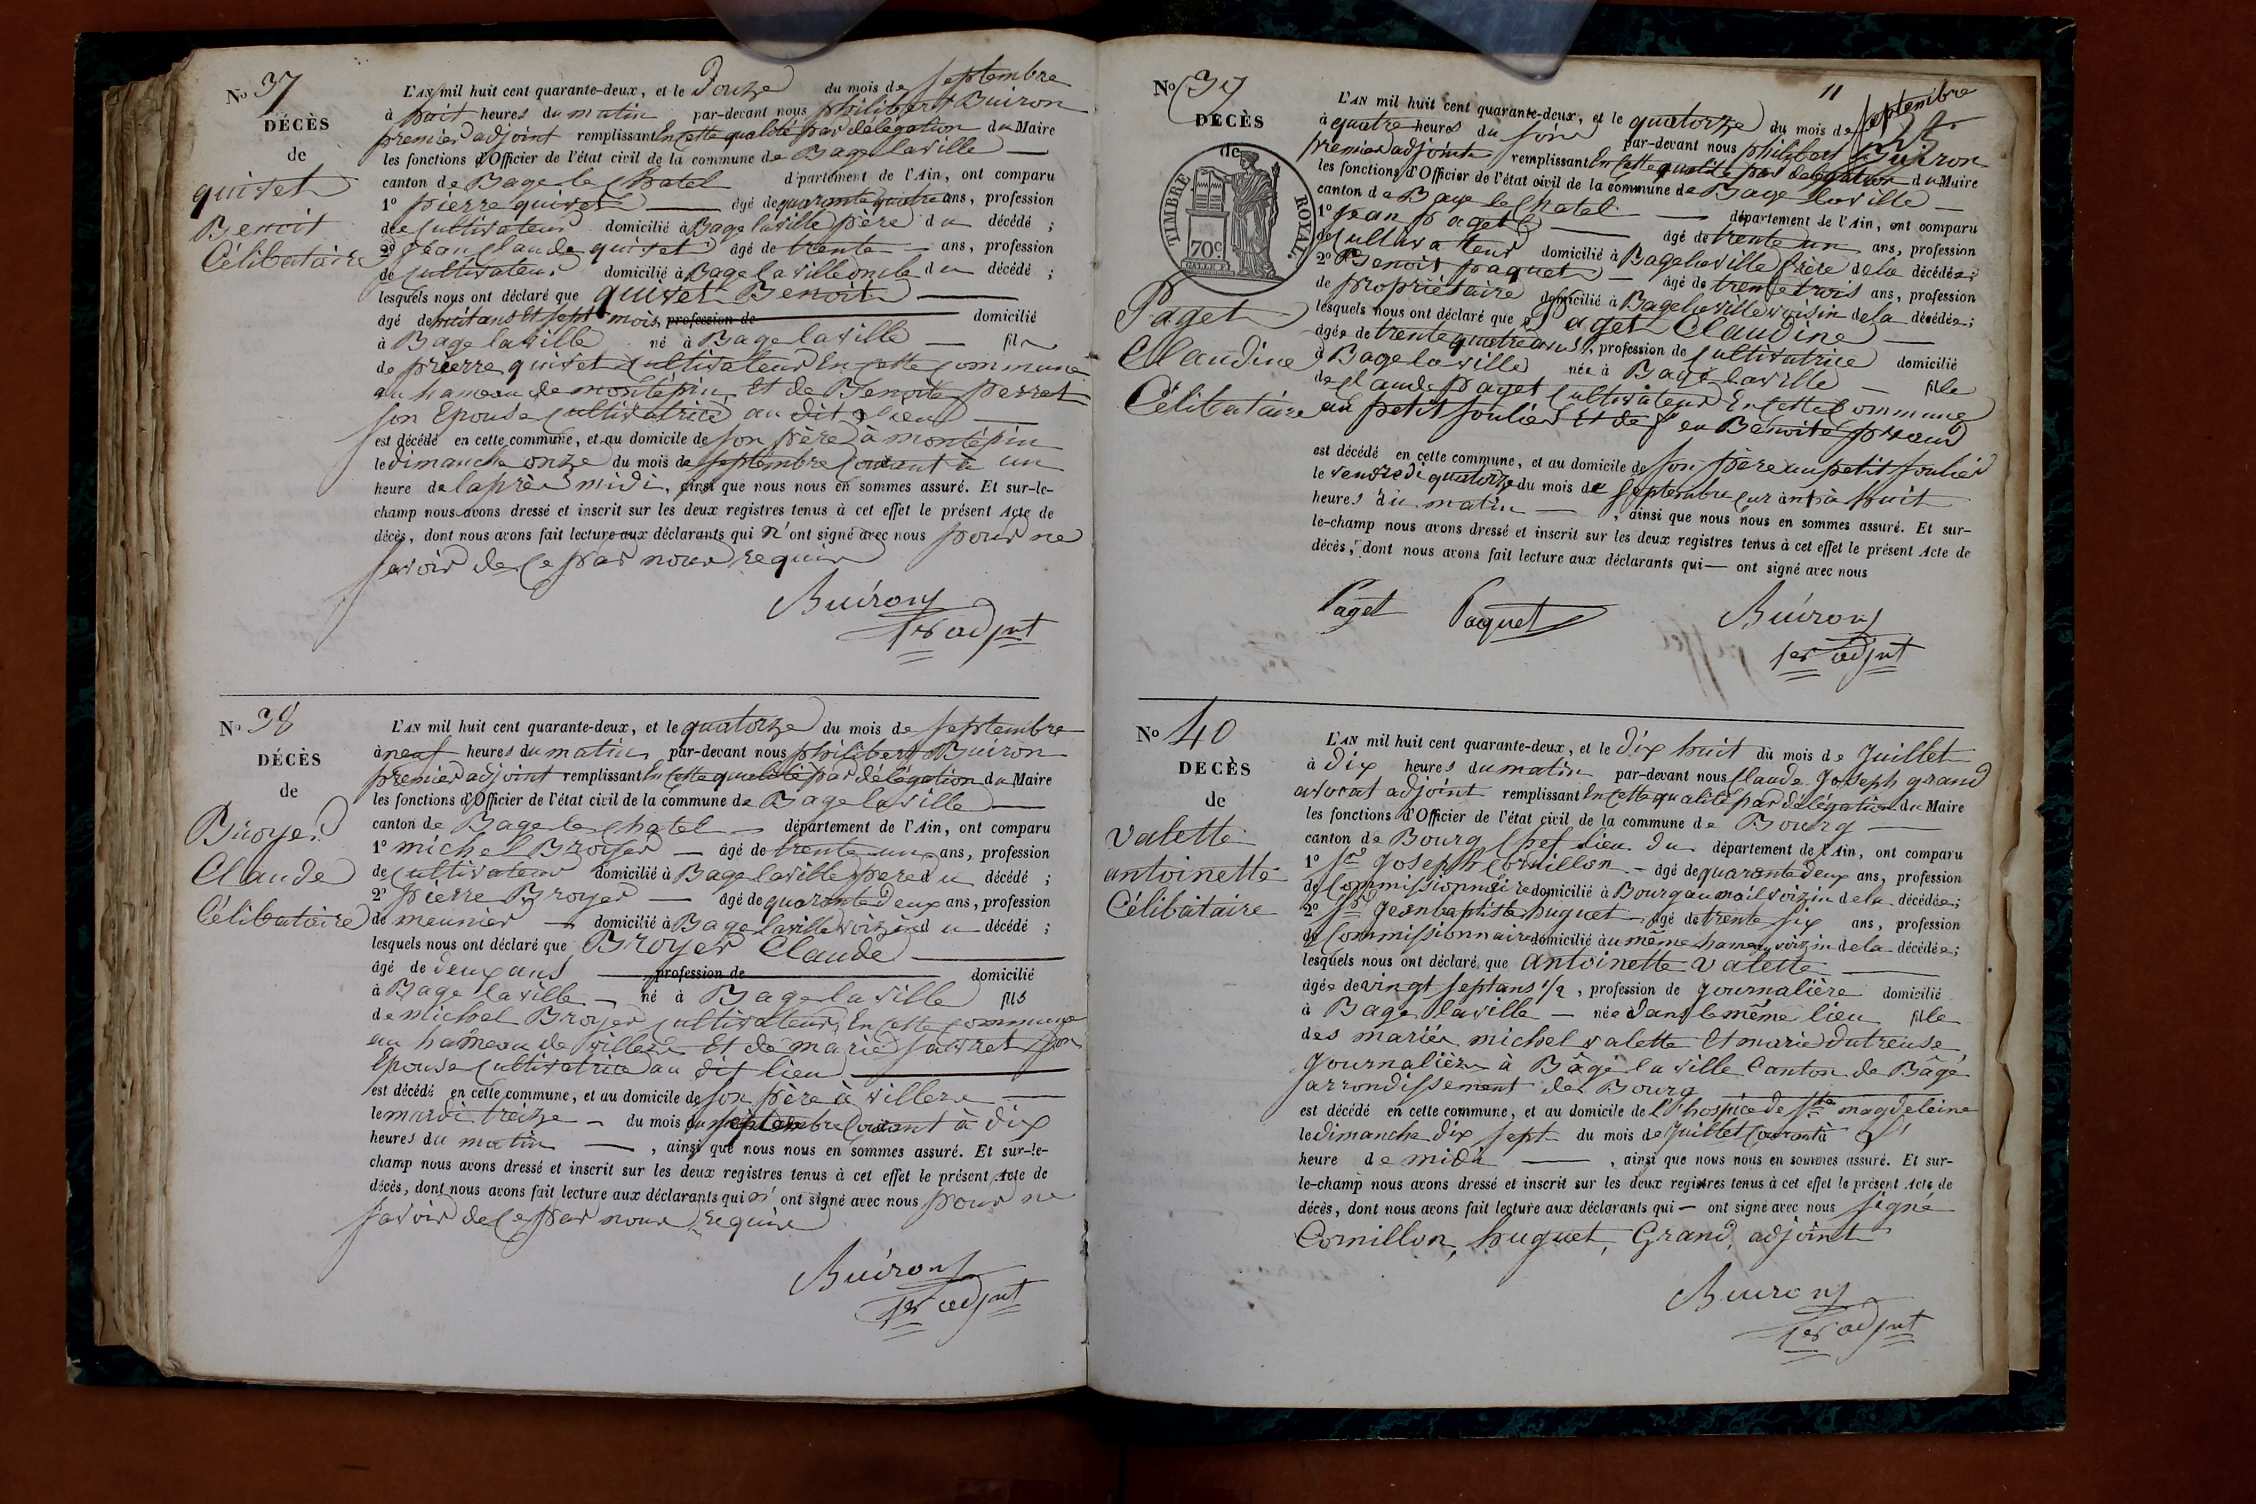 No 37
DÉCÈS
de
quivet
Benoit
Célibataire
L'AN mil huit cent quarante-deux, et le Douze du mois de septembre
à huit heures du matin par-devant nous philibert Buiron
premier adjoint remplissant En cette qualité par délégation du Maire
les fonctions d'Officier de l'état civil de la commune de Bage laville
canton de Bage le Chatel département de l'Ain, ont comparu
1° pierre quivet âgé de quarante quatre ans, profession
de Cultivateur domicilié à Bage laville père du décédé ;
2° Jean Claude quivet âgé de trente ans, profession
de Cultivateur domicilié à Bage la ville oncle du décédé ;
lesquels nous ont déclaré que quivet Benoit
âgé de huit ans et sept mois profession de domicilié
à Bage laville né à Bage laville fils
de pierre quivet Cultivateur En cette commune
au hameau de montépin Et de Benoite perret
son Epouse Cultivatrice au dit lieu
est décédé en cette commune, et au domicile de son père à montépin
le dimanche onze du mois de septembre Courant à un
heure de laprès midi, ainsi que nous nous en sommes assuré. Et sur-le-
champ nous avons dressé et inscrit sur les deux registres tenus à cet effet le présent Acte de
décès, dont nous avons fait lecture aux déclarants qui n'ont signé avec nous pour ne
savoir de Ce par nous requis
Buiron
1er adjnt
No 38
DÉCÈS
de
Broyer
Claude
Célibataire
L'AN mil huit cent quarante-deux, et le quatorze du mois de septembre
à neuf heures du matin par-devant nous philibert Buiron
premier adjoint remplissant En cette qualité par délégation du Maire
les fonctions d'Officier de l'état civil de la commune de Bage laville
canton de Bage le Chatel département de l'Ain, ont comparu
1° michel Broyer âgé de trente un ans, profession
de Cultivateur domicilié à Bage laville pere du décédé ;
2° pierre Broyer âgé de quarante deux ans, profession
de meunier domicilié à Bage laville voizin du décédé ;
lesquels nous ont déclaré que Broyer Claude
âgé de deux ans profession de domicilié
à Bage laville né à Bage laville fils
de michel Broyer Cultivateur En cette commune
au hameau de villere Et de marie savret son
Epouse Cultivatrice au dit lieu
est décédé en cette commune, et au domicile de son père à villere
le mardi treize du mois de septembre Courant à dix
heures du matin , ainsi que nous nous en sommes assuré. Et sur-le-
champ nous avons dressé et inscrit sur les deux registres tenus à cet effet le présent Acte de
décès, dont nous avons fait lecture aux déclarants qui n'ont signé avec nous pour ne
savoir de Ce par nous requis
Buiron
1er adjnt
11
No 39
DECÈS
de
TIMBRE ROYAL.
70c.
Paget
Claudine
Célibataire
L'AN mil huit cent quarante-deux, et le quatorze du mois de septembre
à quatre heures du soir par-devant nous philibert Buiron
premier adjoint remplissant En cette qualité par délégation du Maire
les fonctions d'Officier de l'état civil de la commune de Bage laville
canton de Bage le Chatel département de l'Ain, ont comparu
1° Jean paget âgé de trente un ans, profession
de Cultivateur domicilié à Bage laville frère de la décédée ;
2° Benoit paquet âgé de trente trois ans, profession
de propriétaire domicilié à Bage laville voisin de la décédée ;
lesquels nous ont déclaré que paget Claudine
âgée de trente quatre ans, profession de Cultivatrice domicilié
à Bage laville née à Bage laville fille
de Claude paget Cultivateur En cette Commune
au petit soulier Et de feu Benoite
est décédé en cette commune, et au domicile de son père au petit soulier
le vendredi quatorze du mois de septembre Courant à huit
heures du matin , ainsi que nous nous en sommes assuré. Et sur-
le-champ nous avons dressé et inscrit sur les deux registres tenus à cet effet le présent Acte de
décès, dont nous avons fait lecture aux déclarants qui — ont signé avec nous
Paget Paquet Buiron
1er adjnt
No 40
DECÈS
de
valette
antoinette
Célibataire
L'AN mil huit cent quarante-deux, et le dix huit du mois de Juillet
à dix heures du matin par-devant nous Claude Joseph grand
avocat adjoint remplissant En cette qualité par délégation du Maire
les fonctions d'Officier de l'état civil de la commune de Bourg
canton de Bourg Chef lieu du département de l'Ain, ont comparu
1° Sr Joseph Cornillon âgé de quarante deux ans, profession
de Commissionnaire domicilié à Bourg au mail voizin de la décédée ;
2° Sr Jean baptiste huguet âgé de trente six ans, profession
de Commissionnaire domicilié au même hameau voizin de la décédée ;
lesquels nous ont déclaré que antoinette valette
âgée de vingt sept ans 1/2, profession de Journalière domicilié
à Bage laville née dans le même lieu fille
des mariés michel valette Et marie dutreuse,
Journalière à Bâgé la ville Canton de Bâgé
arrondissement de Bourg
est décédé en cette commune, et au domicile de l'hospice de Ste magdeleine
le dimanche dix sept du mois de Juillet Courant à
heure de midi , ainsi que nous nous en sommes assuré. Et sur-
le-champ nous avons dressé et inscrit sur les deux registres tenus à cet effet le présent Acte de
décès, dont nous avons fait lecture aux déclarants qui — ont signé avec nous signé
Cornillon, huguet, Grand, adjoint
Buiron
1er adjnt